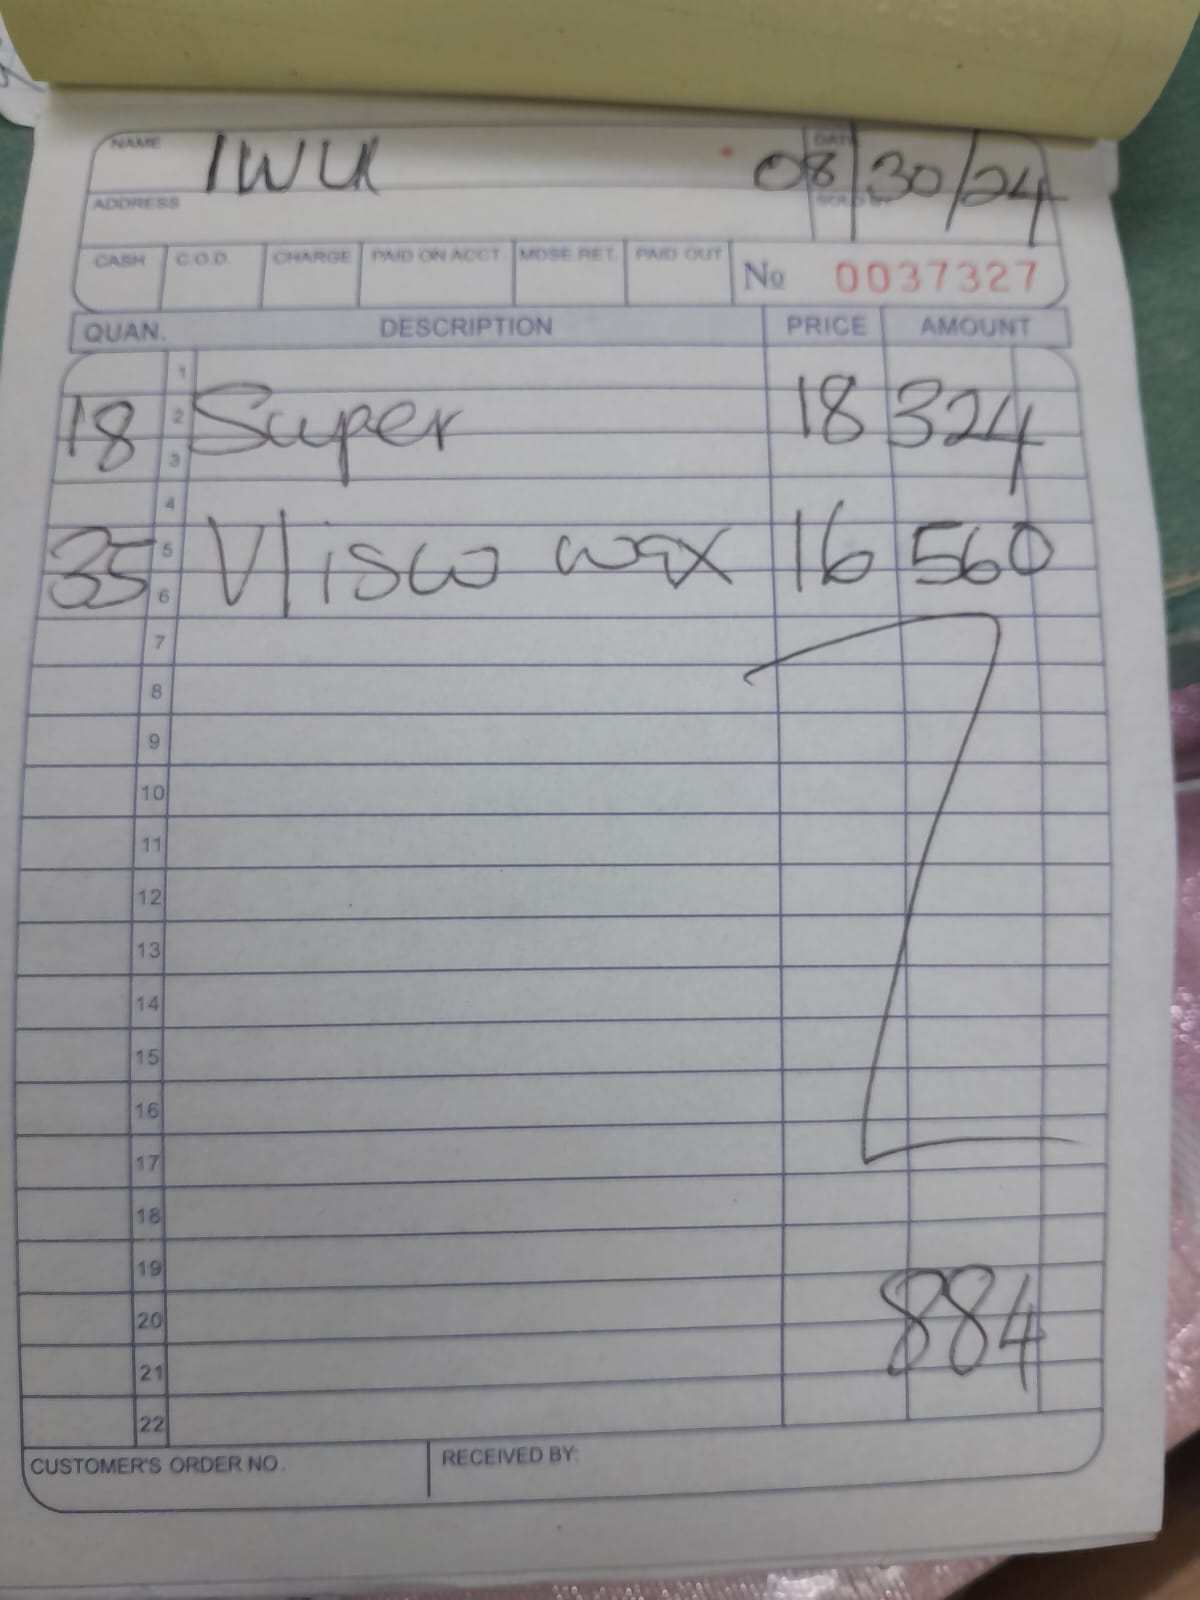 NAME IWU DATE 08/30/24
ADDRESS SOLD BY
CASH C.O.D. CHARGE PAID ON ACCT. MDSE RET. PAID OUT No 0037327
QUAN. DESCRIPTION PRICE AMOUNT
1
18 2 Super 18 324
3
4
35 5 Vlisco wax 16 560
6
7
8
9
10
11
12
13
14
15
16
17
18
19
20 884
21
22
CUSTOMER'S ORDER NO. RECEIVED BY: